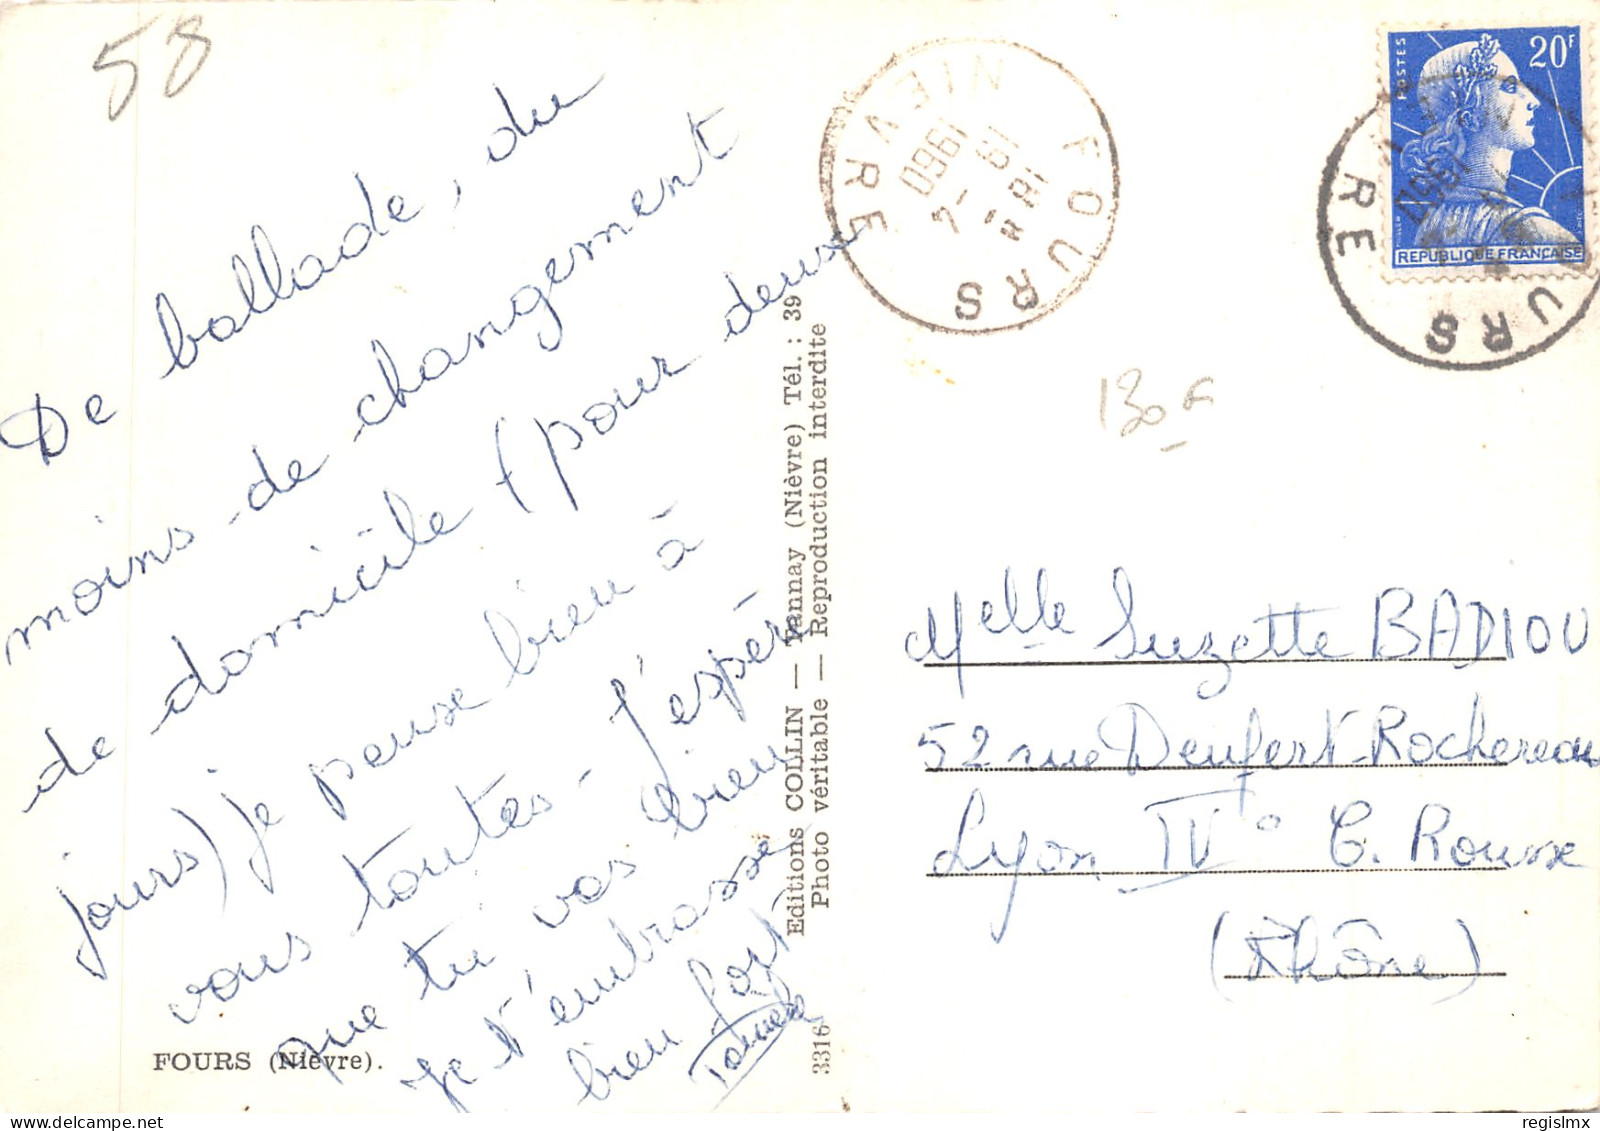 58
De ballade, du
moins de changement
de domicile (pour deux
jours) je pense bien à
vous toutes. J'espère
que tu vas bien
Je t'embrasse
bien fort
FOURS (Nièvre).
Editions COLLIN — Tannay (Nièvre) Tél. : 39
Photo véritable — Reproduction interdite
3316
FOURS
NIEVRE
18 H
19 -4
1960
POSTES
20F
REPUBLIQUE FRANÇAISE
FOURS
1960
Melle Suzette BADIOU
52 rue Denfert-Rochereau
Lyon IV° C. Rousse
(Rhône)
regislmx